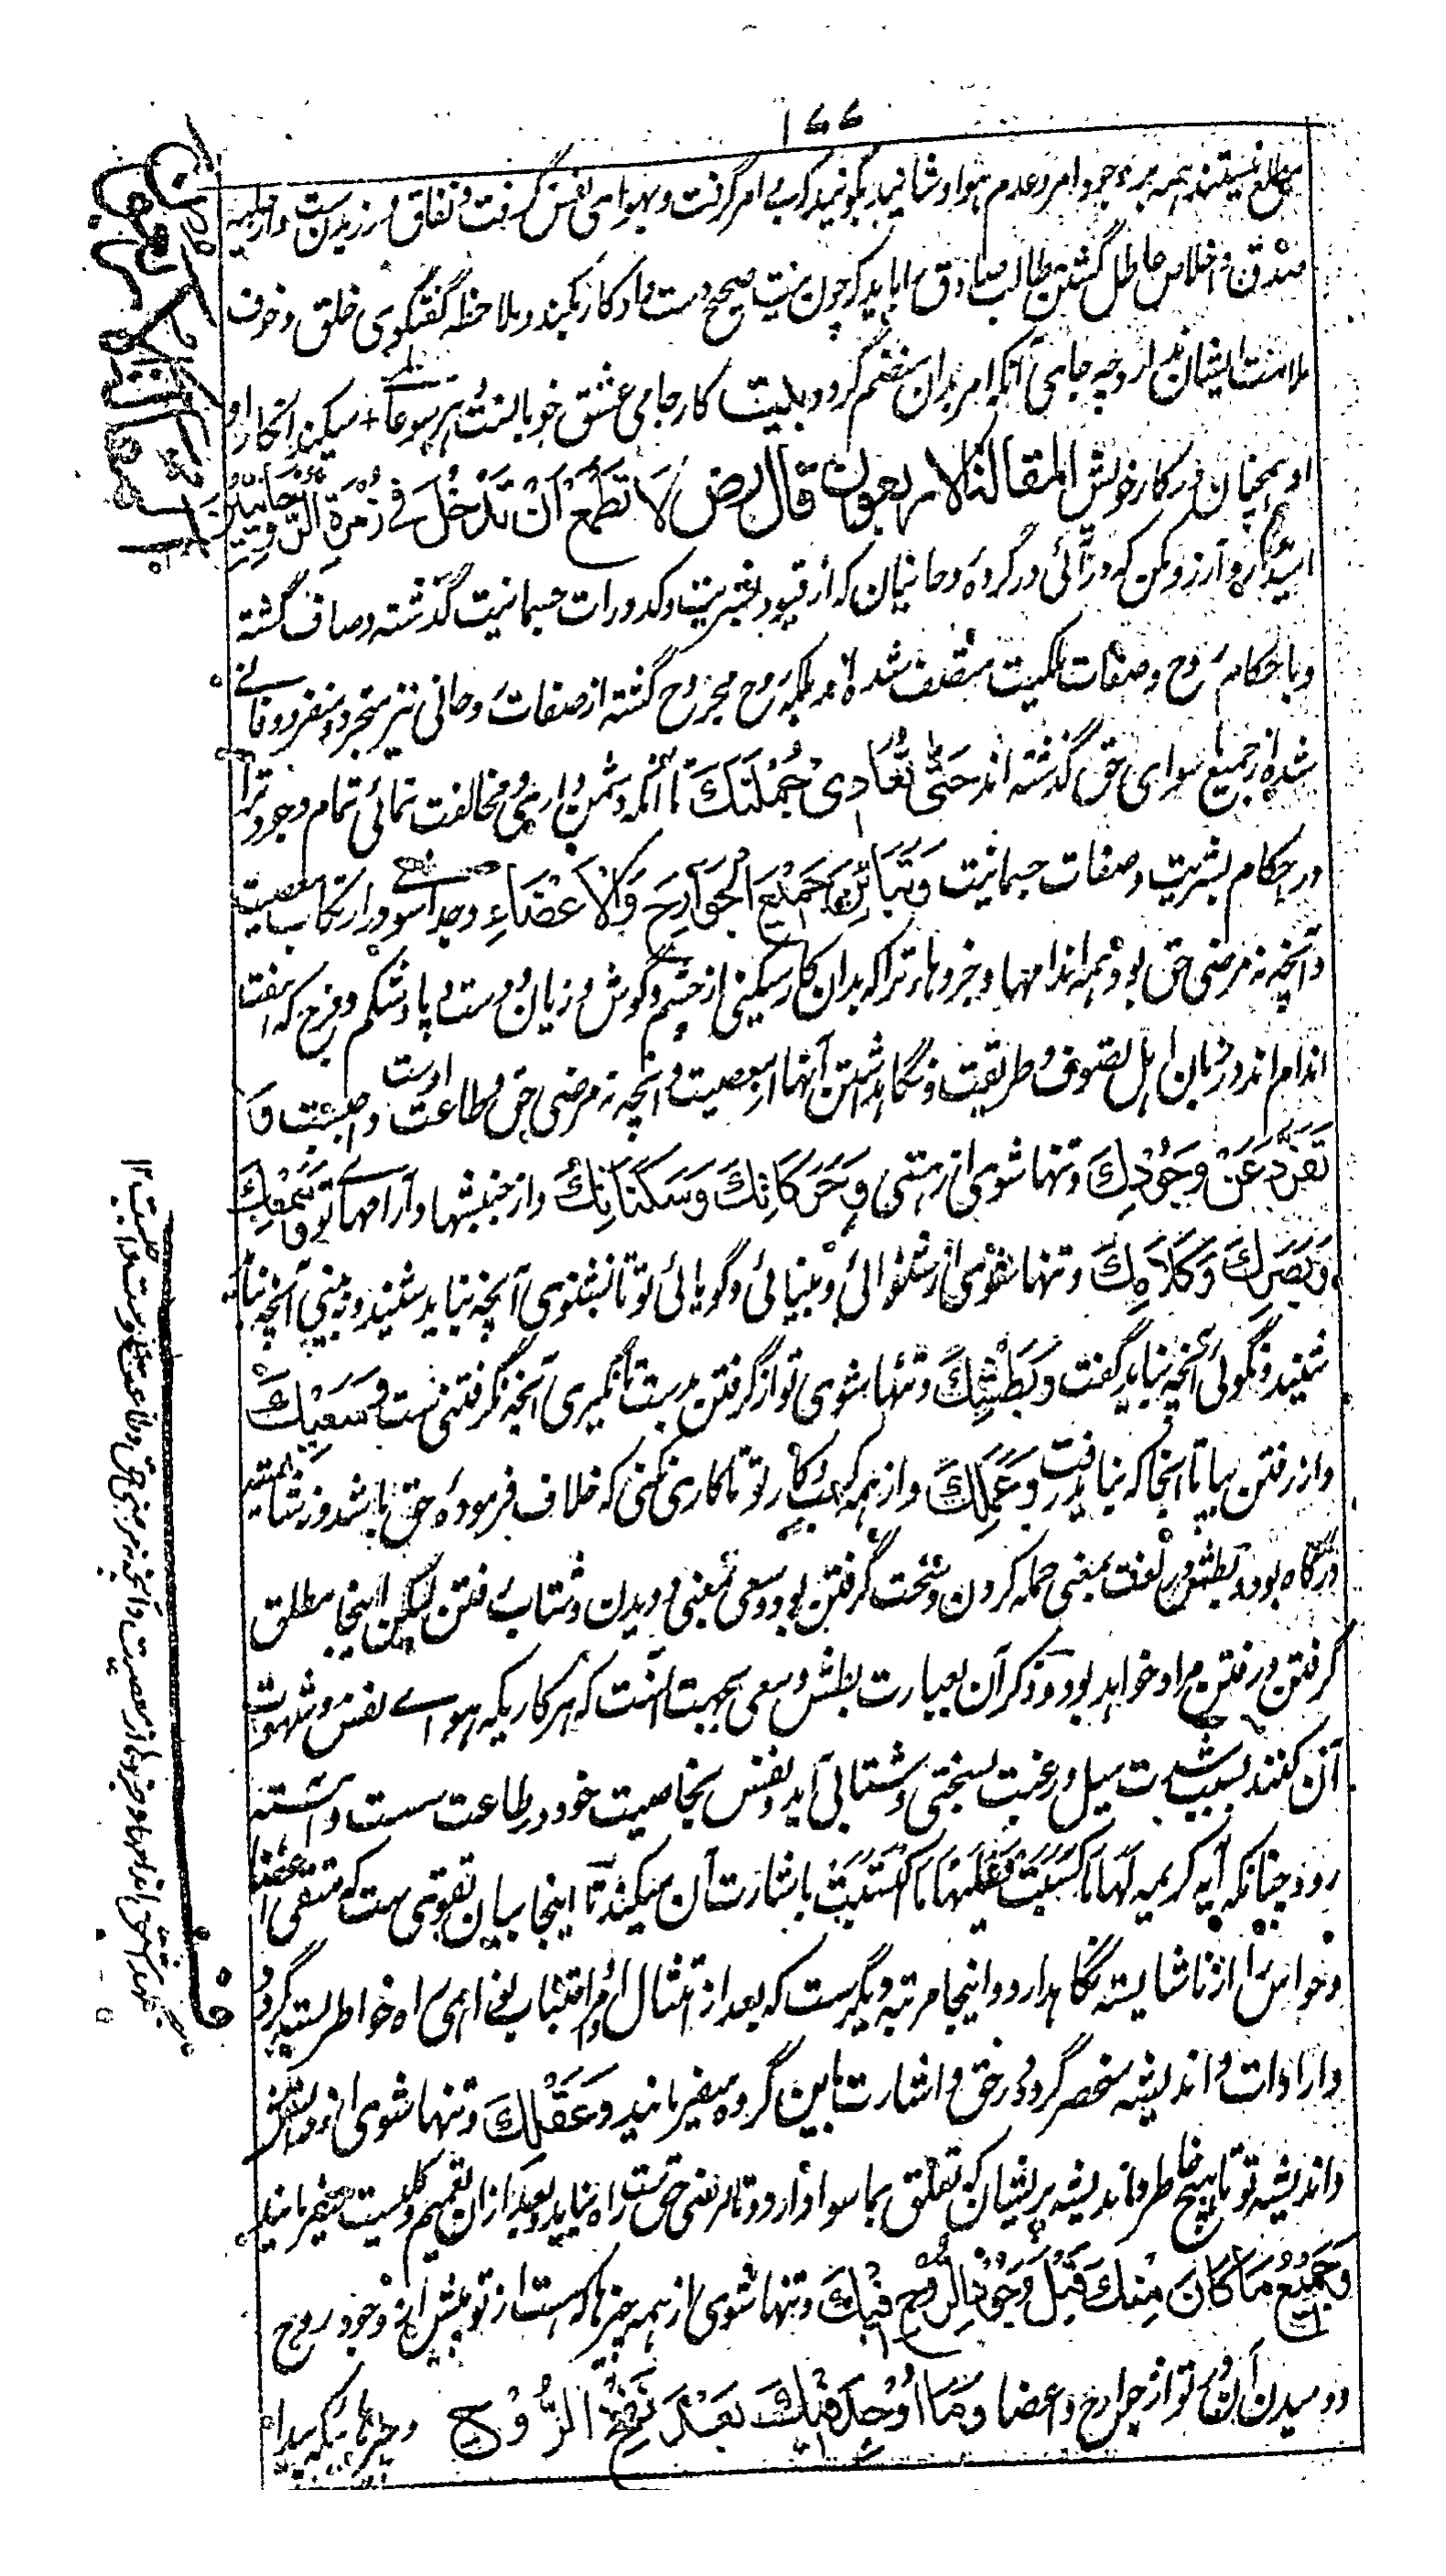 ۱۶۶
مطلع نیستند همه برد وجود امر و عدم هوا و شانیدند بگویند که بی امر گرفت و بهوای نفس گرفت و نفاق ورزیدن ست و از حلیه
صدق و اخلاص عاطل گشتن طالب صادق را باید که چون بنیت صحیح دست داد کار بکند و ملاحظه گفتگوی خلق و خوف
ملامت ایشان ندارد چه جای آنکه امر بدان منضم گردد بیت کار جامی عشق خوبانست هر سو عالمی + میکند انکار او
او همچنان در کار خویش المقالة الاربعون قال رض لا تطمع ان تدخل في زمرة الروحانیین
امیدوار و آرزو مکن که در آئی در گروه روحانیان که از قیود بشریت و کدورات جسمانیت گذشته و صاف گشته
و باحکام روح و صفات ملکیت متصف شده اند بلکه روح مجروح گشته از صفات روحانی نیز متجرد و منفرد و فانی
شده از جمیع ما سوای حق گذشته اند حتی تعادی جملتک تا آنکه دشمن داری و مخالفت نمائی تمام وجود ترا
در احکام بشریت و صفات جسمانیت و تباین جمیع الجوارح والاعضاء و جدا شوی در ارتکاب معصیت
و آنچه نه مرضی حق بود همه اندامها و جزوهای ترا که بدان کار میکنی از چشم و گوش و زبان و دست و پا و شکم و فرج که هفت
اندام اند در زبان اهل تصوف و طریقت و نگاهداشتن آنها از معصیت و آنچه نه مرضی حق و طاعت اوست واجبست و
تفرد عن وجودک و تنها شوی از هستی و حرکاتک وسکناتک و از جنبشها و آرامهای تو وسمعک
وبصرک وکلامک و تنها شوی از شنوائی و بینائی و گویائی تو تا نشنوی آنچه نباید شنید و نه بینی آنچه نباید
شنید و نگوئی آنچه نباید گفت وبطشک و تنها شوی تو از گرفتن بدست تا نگیری آنچه نگرفتنی ست وسعیک
و از رفتن بپا تا آنجا که نباید رفت وعملک و از همه کسب و کار تو تا کاری نکنی که خلاف فرموده حق باشد و نه شایسته
درگاه بود و بطش در لغت بمعنی حمله کردن و سخت گرفتن بود و سعی بمعنی دویدن و شتاب رفتن لیکن اینجا مطلق
گرفتن و رفتن مراد خواهد بود و ذکر آن بعبارت بطش و سعی بجهت آنست که هر کاریکه بهوای نفس و شهوت
آن کنند بسبب شدت میل و رغبت بسختی و شتابی آید و نفس بخاصیت خود در طاعت سست و آهسته
رود چنانکه آیه کریمه لها ما کسبت وعلیها ما اکتسبت باشارت آن میکند تا اینجا بیان تقوی ست که متقی اعضا
و حواس را از ناشایسته نگاهدارد و اینجا مرتبه دیگرست که بعد از امتثال اوامر و اجتناب نواهی راه خواطر بسته گردد
و ارادات و اندیشه منحصر گردد در حق و اشارت باین گروه میفرمانید وعقلک و تنها شوی از خرد
و اندیشه تو تا هیچ خاطر و اندیشه پریشان که تعلق بما سوا دارد و نامرضی حق ست راه نیابد و بعد از آن تعمیم و کلیت میفرمایند
وجمیع ما کان منک قبل وجود الروح فیک و تنها شوی از همه چیزها که هست از تو پیش از وجود روح
و دمیدن آن در تو از جوارح و اعضا وما اوجد فیک بعد نفخ الروح و چیزهائیکه پیدا